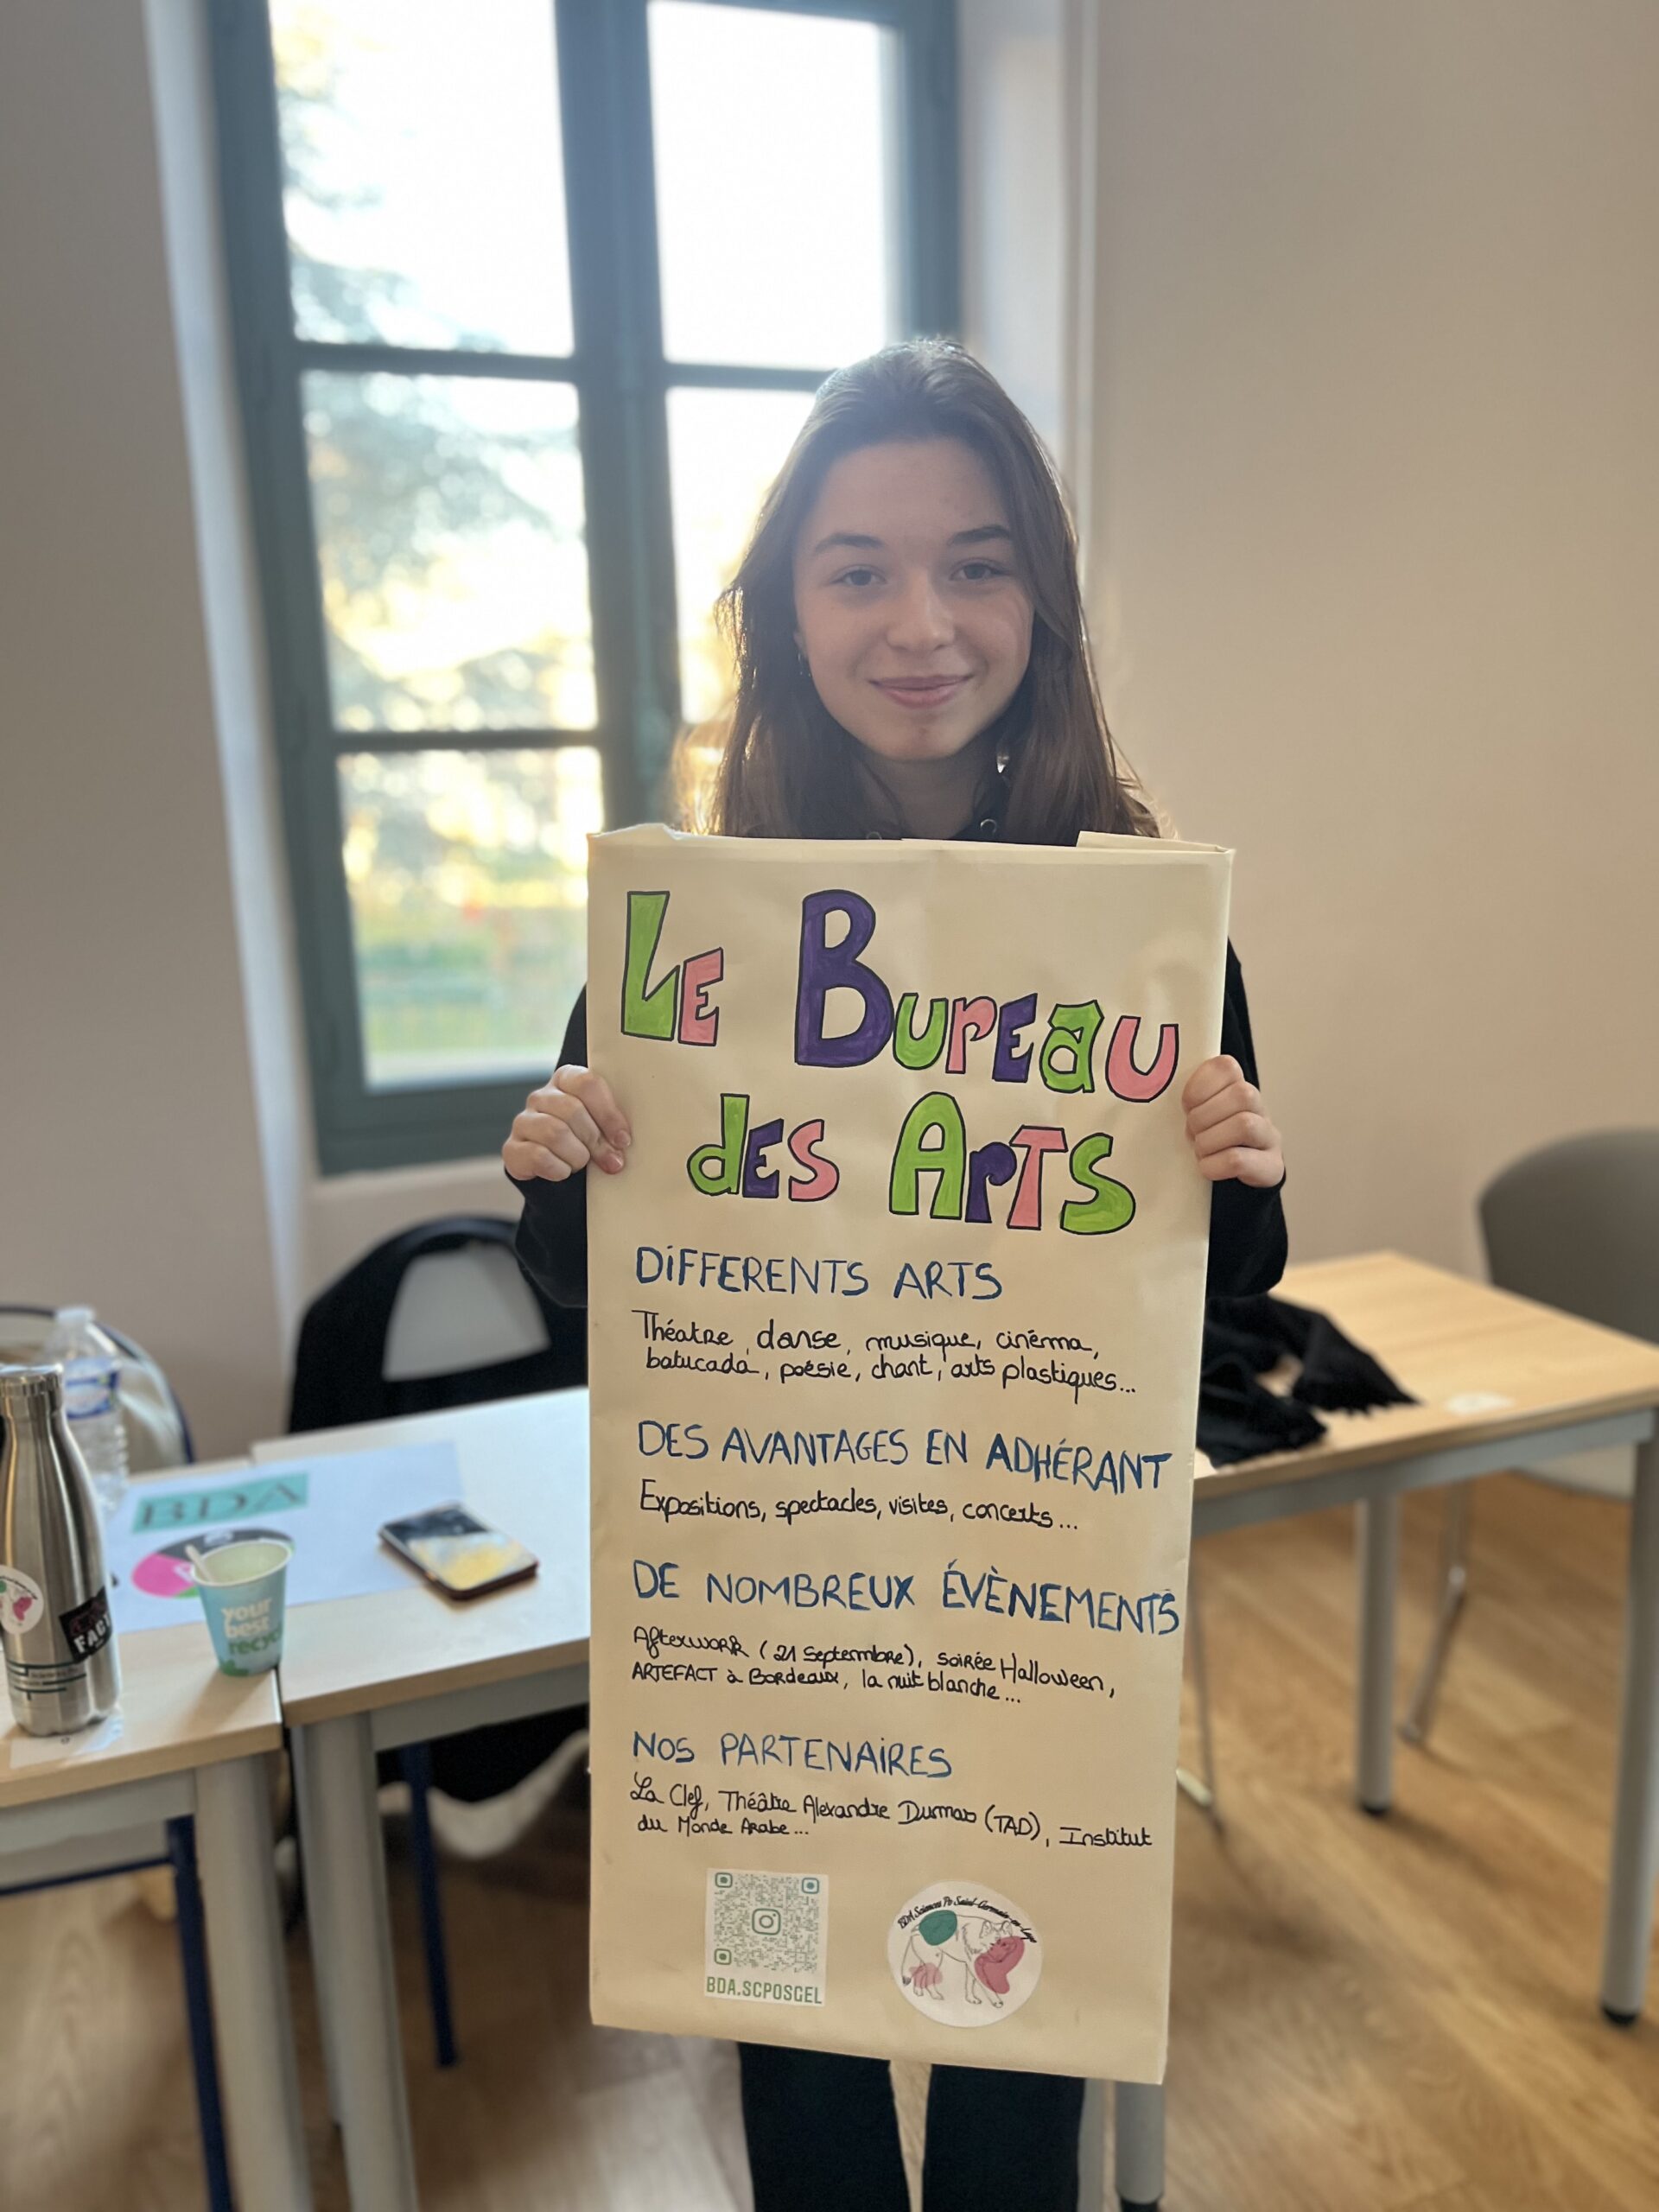 LE BUREAU
DES ARTS
DIFFERENTS ARTS
Théatre, danse, musique, cinéma,
batucada, poésie, chant, arts plastiques...
DES AVANTAGES EN ADHÉRANT
Expositions, spectacles, visites, concerts...
DE NOMBREUX ÉVÈNEMENTS
Afterwork (21 Septembre), soirée Halloween,
ARTEFACT à Bordeaux, la nuit blanche...
NOS PARTENAIRES
La Clef, Théâtre Alexandre Dumas (TAD), Institut
du Monde Arabe...
BDA.SCPOSGEL
BDA Sciences Po Saint-Germain-en-Laye
BDA
your
best
recyc